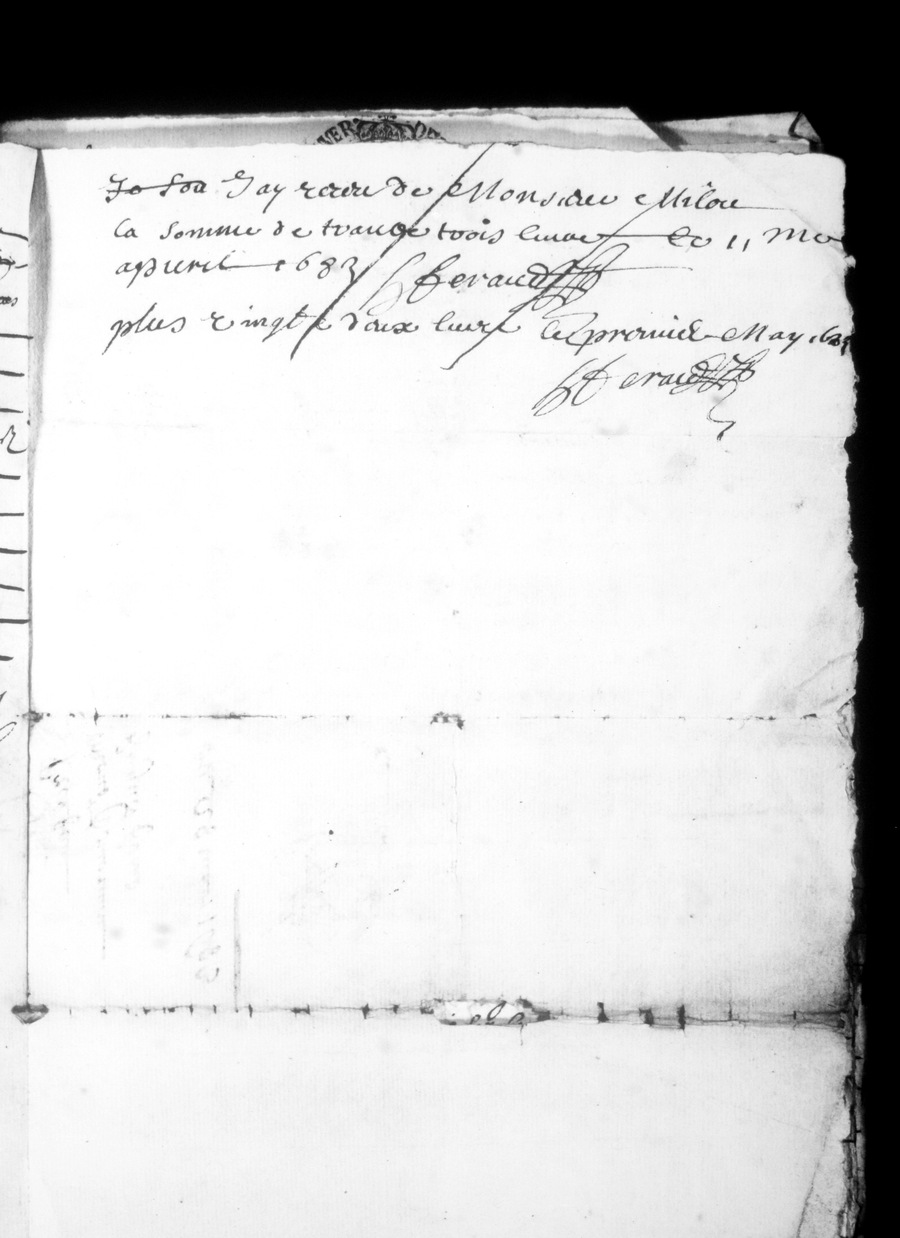 VER DE
Jay receu de Monsieur Milou
la somme de trante trois livre le 11 me
apveril 1683 Feraud
plus vingt e deux livre le premier May 168
Feraud